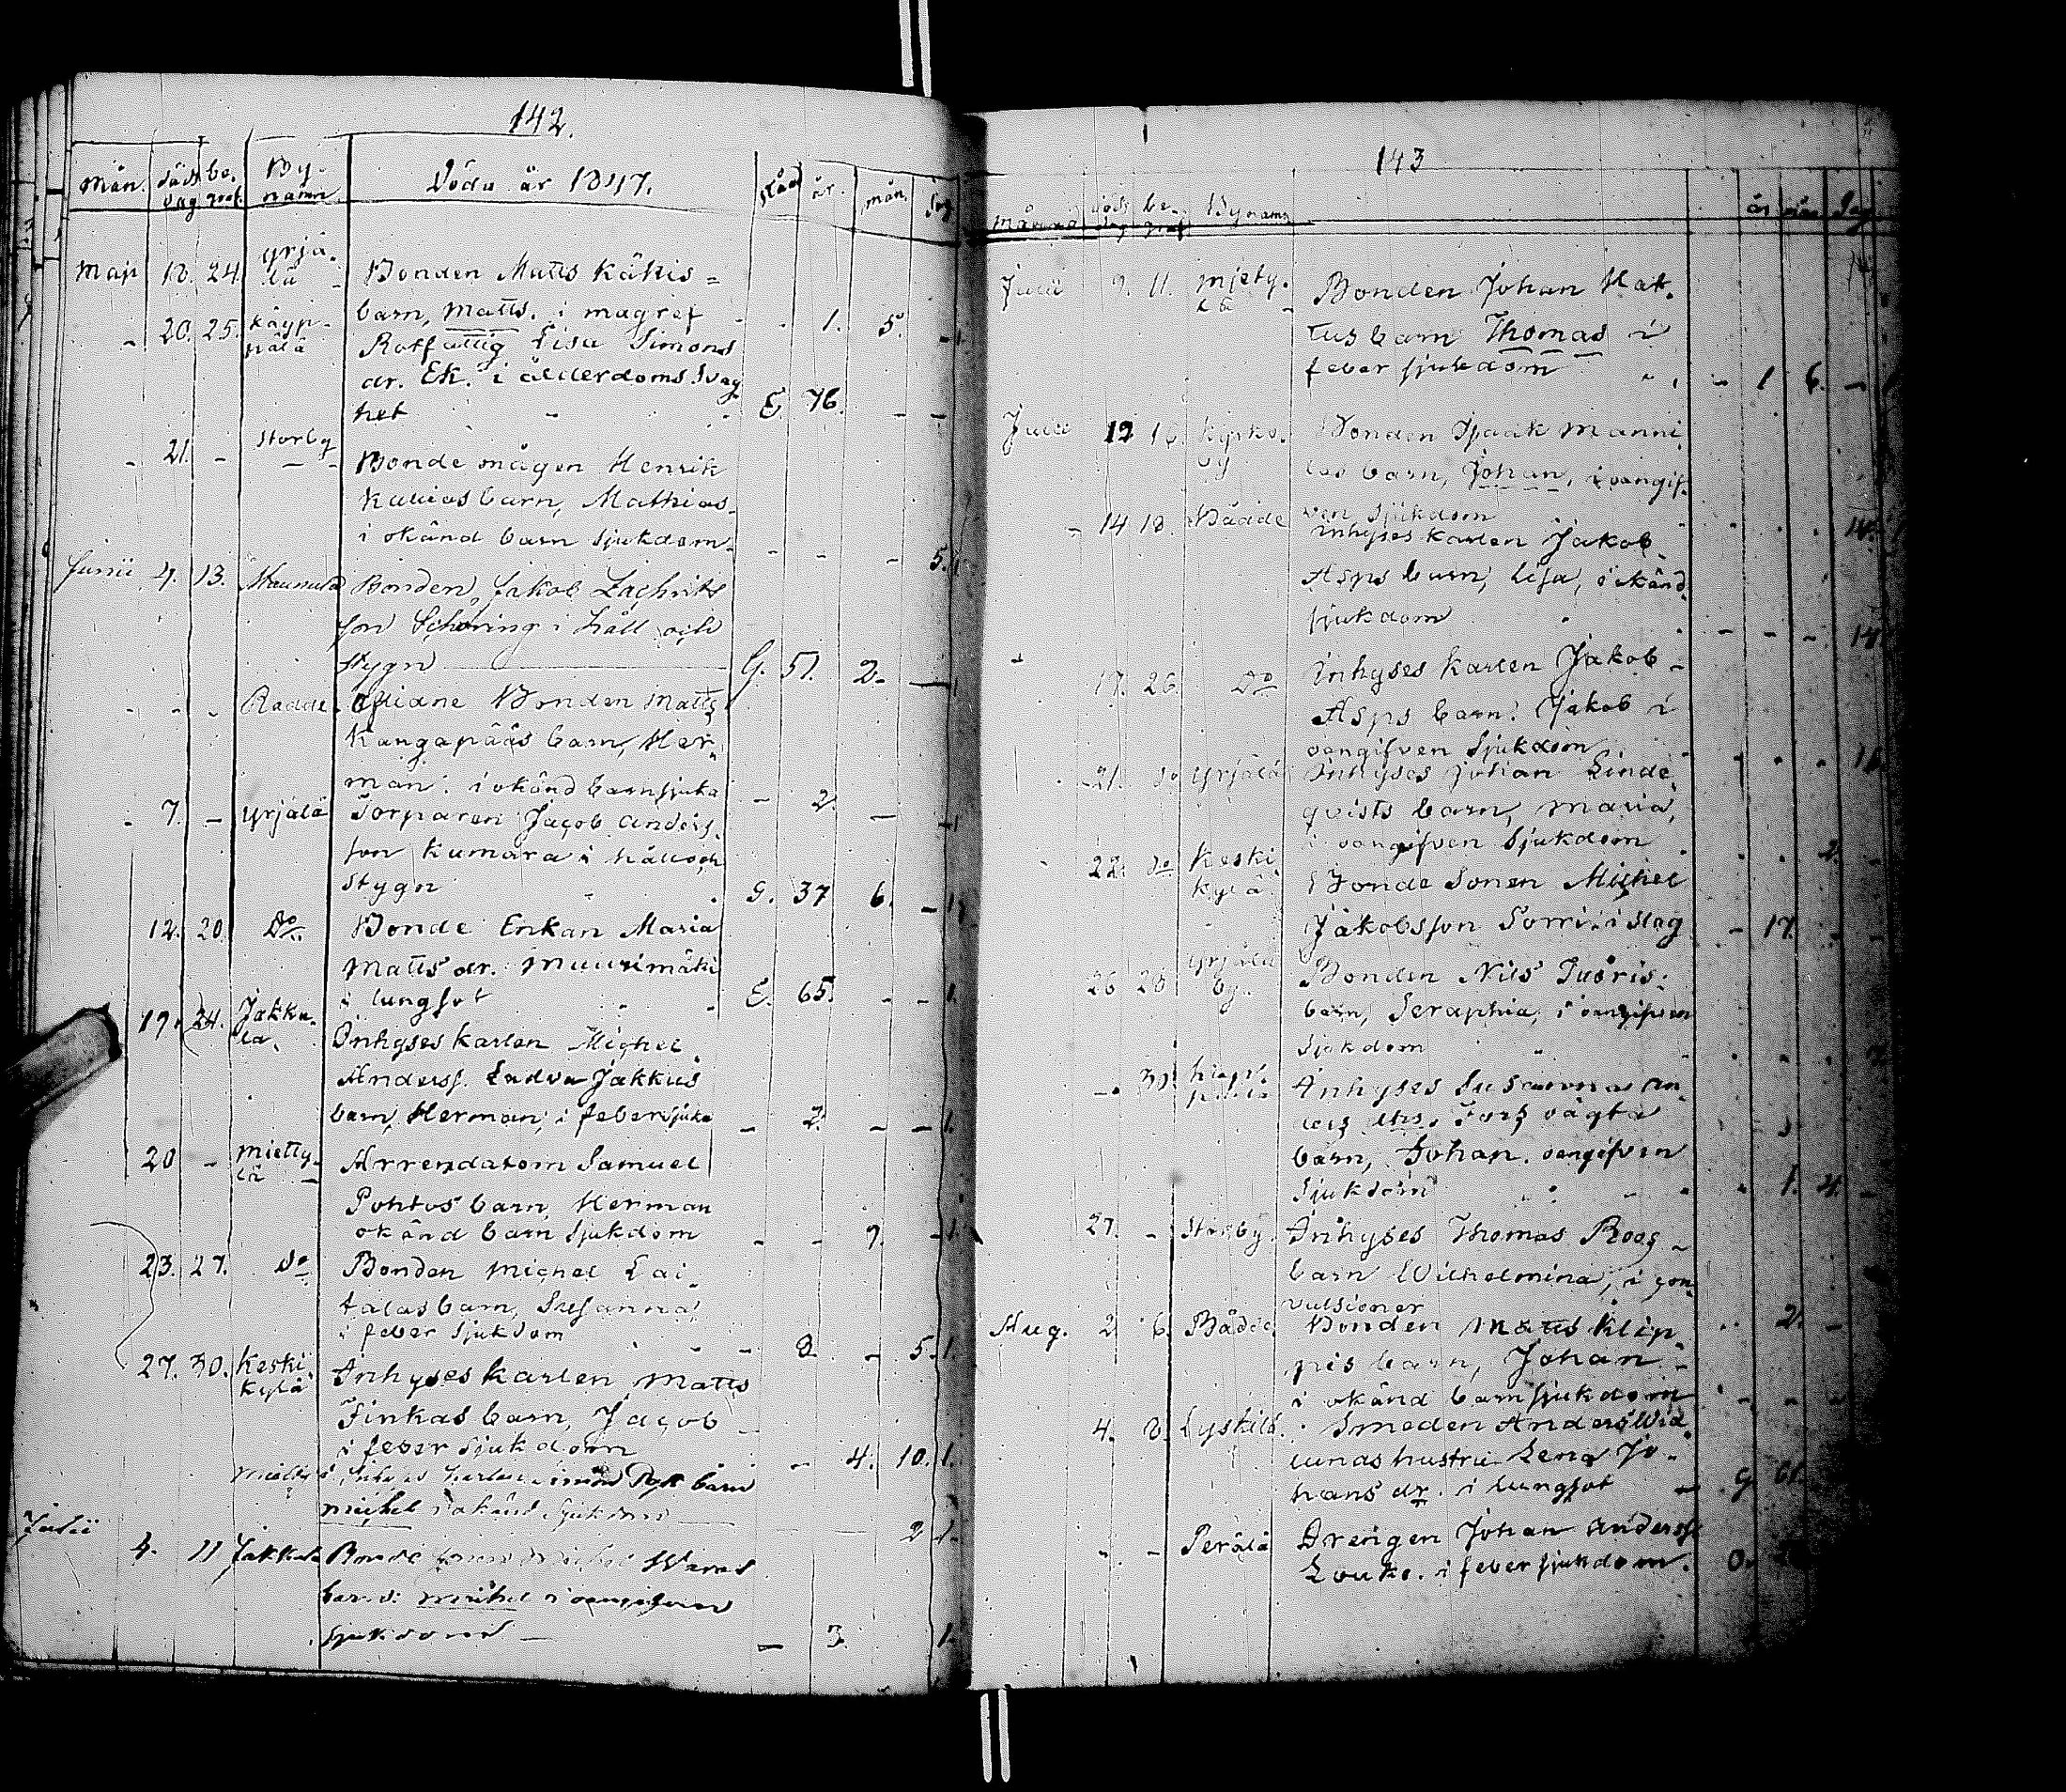 142.
Mån. döds dag be. graf. By. namn. Döde år 1847. stånd år. mån. dag
Maji 18. 24. Yrjä. lä Bonden Matts Käkis=
barn, Matts. i magref - 1. 5. - 1.
20. 25. Kärp. pälä Rotfattig Lisa Simons
dr. Ek. i ålderdoms svag
het E. 76. - -
21. - Storby Bondemågen Henrik
Kallias barn, Mathias
i okänd barn sjukdom - - - 5.
Junii 4. 13. Bonden Jakob Zachrits
son Schöring i håll och
stygn G. 51. 2. -
- - - Bonden Matts
Kangapääs barn, Her
man. i okänd barnsjuka - 2. - -
7. - Yrjälä Torparen Jacob Anders
son Kumara i håll och
stygn G. 37 6. -
12. 20. Do. Bonde Enkan Maria
Matts dr. Muurimäki
i lungsot E. 65. - - 1.
19. 24. Jakku. la. Inhyses karlen Michel
Anderss. Ladva Jakkus
barn, Herman, i febersjuka - 2. - - 1.
20 - Mietty. lä Arrendatorn Samuel
Pohtos barn, Herman
okänd barn sjukdom - - 9. - 1.
23. 27. Do Bonden Michel Lai
talas barn, Susanna,
i feber sjukdom - 8. - 5. 1.
27. 30. Keski kylä Inhyses karlen Matts
Finkas barn, Jacob
i feber sjukdom - 4. 10. 1.
barn
Michel i okänd sjukdom 2 1.
Julii 4. 11 Jakkula Bonde sonen Michel
barn: Michel i oangifven
sjukdom - 3. 1.
143
Månad döds dag be- graf Bynamn år mån. dag
Julii 9. 11. Mjety. lä Bonden Johan Hat.
tus barn Thomas i
feber sjukdom - 1 6. -
Julii 12 16. Kyrko. by Bonden Isaak Manni
las barn, Johan, i oangif
ven sjukdom
14 18. Bådde Inhyses karlen Jakob
Asps barn, Lisa, i okänd
sjukdom - - - 14
17. 26. Do Inhyses karlen Jakob -
Asps barn. Jakob i
oangifven sjukdom
21. do Yrjälä Inhyses Johan Linde
qvists barn, Maria,
i oangifven sjukdom 2.
22. do Keski kylä Bonde Sonen Michel
Jakobsson Sorri. i slag - 17. - -
26 28 Yrjälä by. Bonden Nils
barn, Seraphia, i oangifven
sjukdom
30. Inhyses Susanna An
ders dtrs. Fors oägta
barn, Johan. oangifven
sjukdom 1. 4. -
27. - Storby. Inhyses Thomas Roos
barn Wilhelmina, i con
vulsioner 2.
Aug. 2. 6. Bådde Bonden Matts Klip
pis barn, Johan
i okänd barnsjukdom - - -
4. 8. Lyskilä. Smeden Anders Wid
lunds hustru Lena Jo.
hans dr. i lungsot - G 61.
- - Perälä Drengen Johan Anderss
Louko. i feber sjukdom. O.